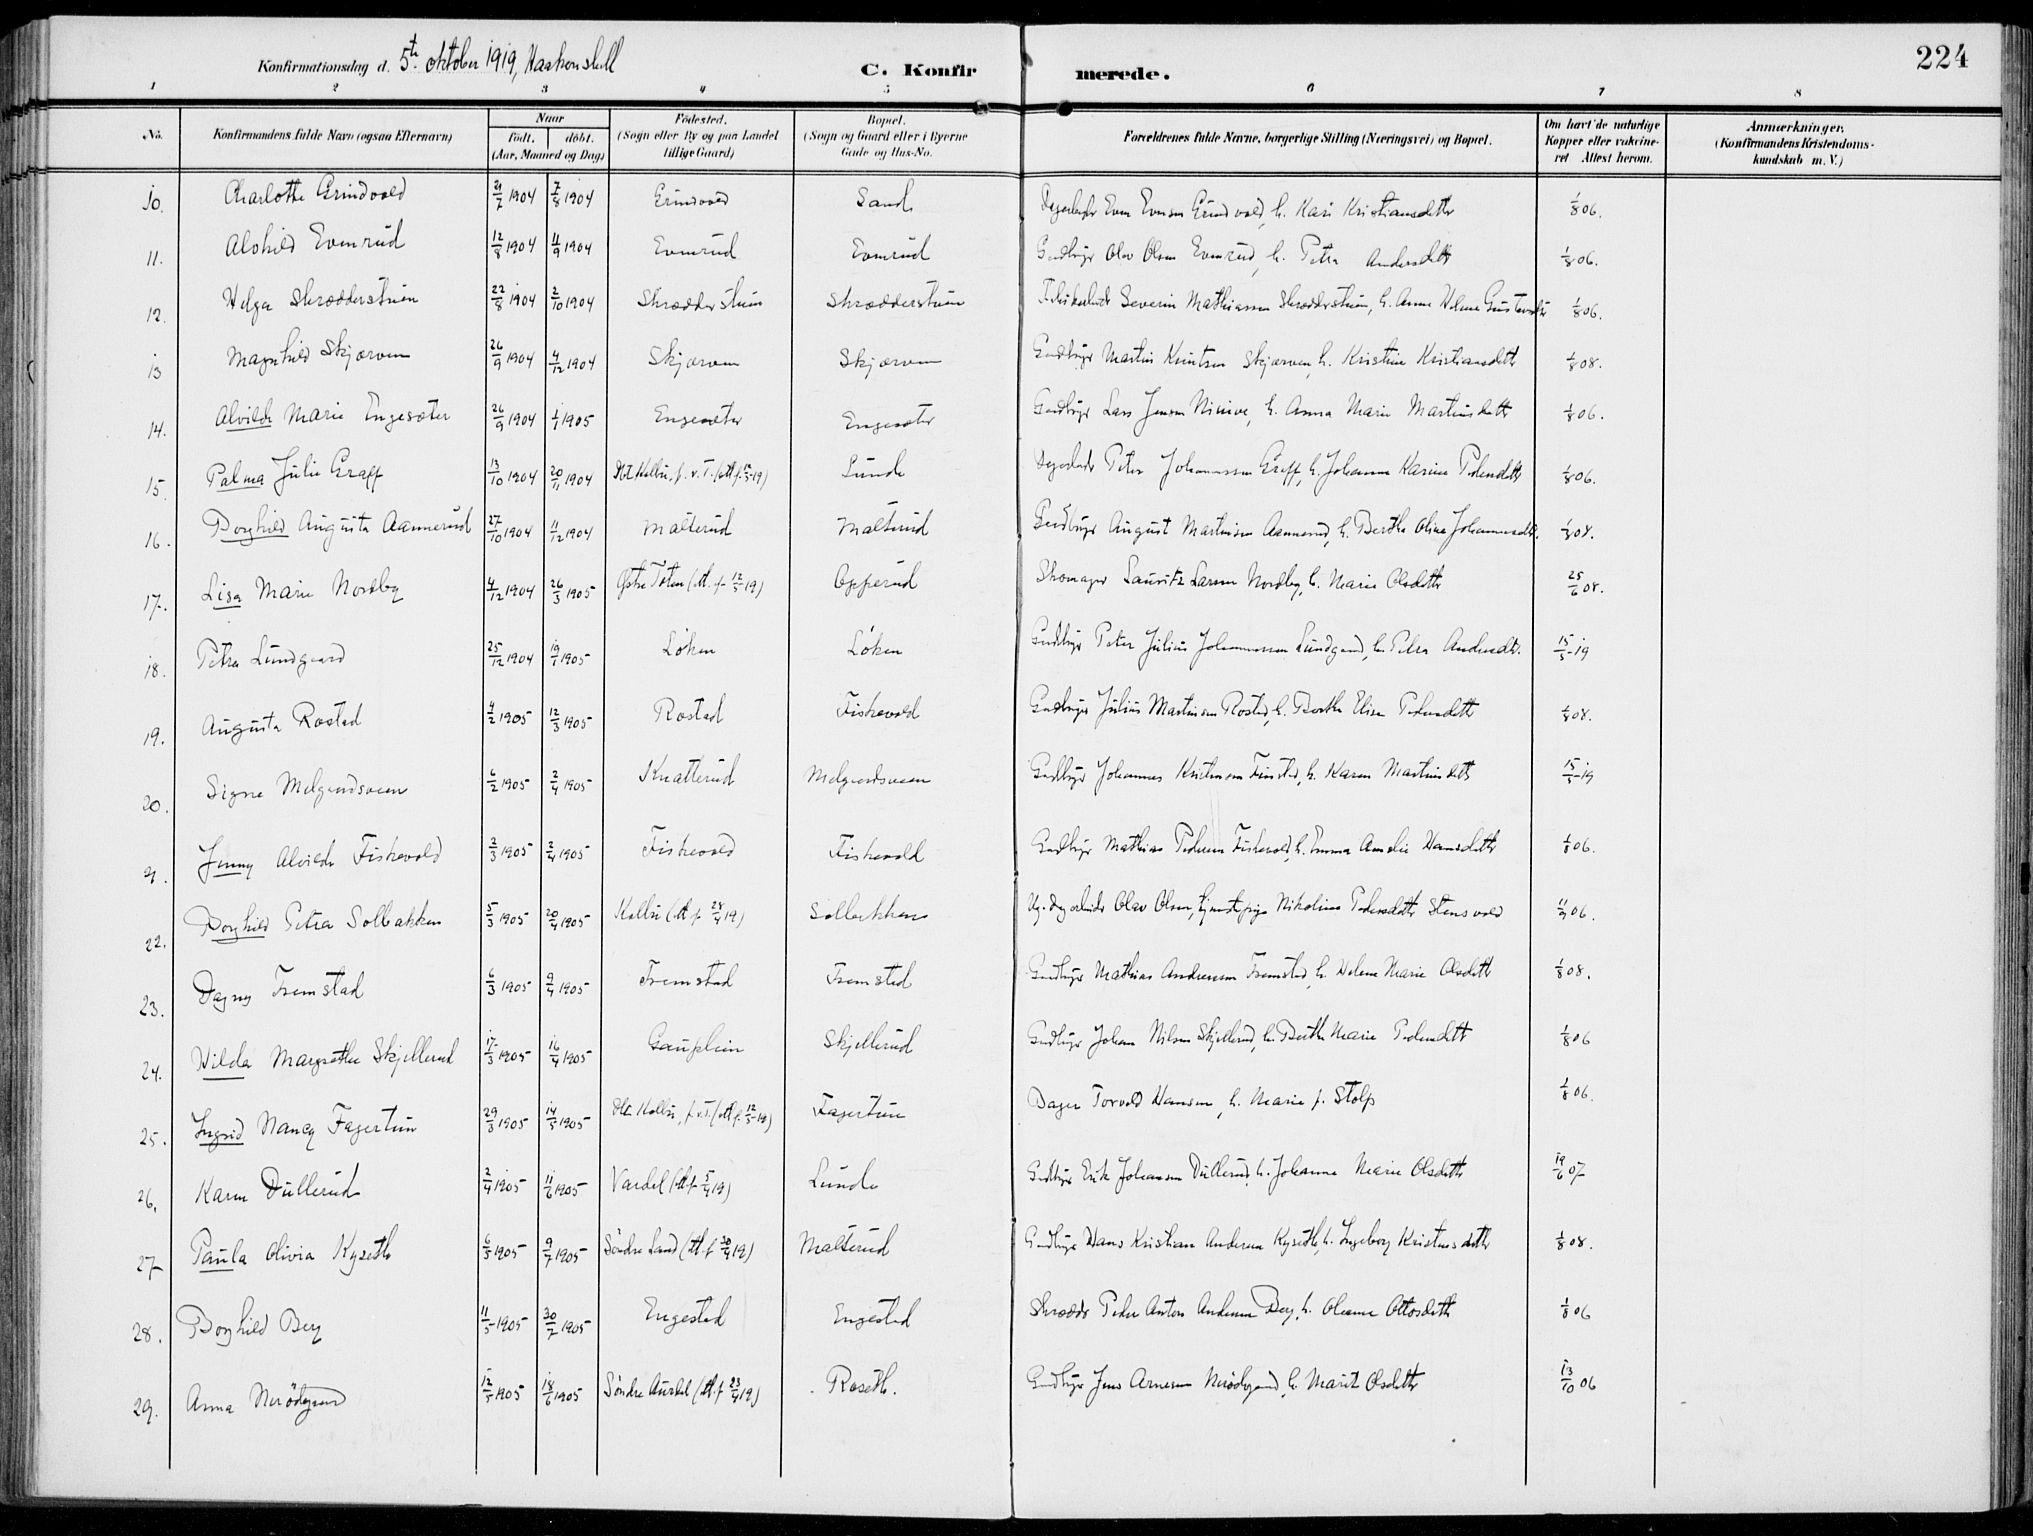 Konfirmationsdag d. 5te oktober 1919, Haakonshall
C. Konfirmerede.
224
1 2 3 4 5 6 7 8
No. | Konfirmandens fulde Navn (ogsaa Efternavn) | Naar født. døbt. (Aar, Maaned og Dag) | Fødested. (Sogn eller By og paa Landet tillige Gaard) | Bopæl. (Sogn og Gaard eller i Byerne Gade og Hus-No. | Forældrenes fulde Navne, borgerlige Stilling (Næringsvei) og Bopæl. | Om havt de naturlige Kopper eller vakcineret Attest herom. | Anmærkninger. (Konfirmandens Kristendomskundskab m. V.)
10. Charlotte Grindvold 29/7 1904 7/8 1904 Grindvold Sand Even Evensen Grindvold, h. Kari Kristiansdatter 1/8 06.
11. Alvhild Evenrud 12/8 1904 11/9 1904 Evenrud Evenrud Gaardbruger Olav Olsen Evenrud, h. Petra Andersdtr 1/8 06.
12. Helga Skrædderstuen 22/8 1904 2/10 1904 Skrædderstuen Skrædderstuen Severin Mathiassen Skrædderstuen, h. Anne Helene 1/8 06.
13 Magnhild Skjærven 26/9 1904 4/12 1904 Skjærven Skjærven Gaardbruger Martin Knutsen Skjærven, h. Kristine Kristiansdtt 1/8 08.
14. Alvilde Marie Engesæter 26/9 1904 1/1 1905 Engesæter Engesæter Gaardbruger Lars Jensen Ninive, h. Anna Marie Martinsdatter 1/8 06.
15. Palma Julie Graff 13/10 1904 20/11 1904 Kolbu, v. T. 19) Lunde Peter Johannessen Graff, h. Johanne Karine Pedersdtr 1/8 06.
16. Borghild Augusta Aannerud 27/10 1904 11/12 1904 Malterud Malterud Gaardbruger August Martinsen Aannerud, h. Berthe Oline Johannesdtr. 1/8 08.
17. Lisa Marie Nordby 4/12 1904 26/3 1905 Østre Toten (att. fr 12/5 19) Opperud Skomager Lauritz Larsen Nordby, h. Marie Olsdatter 25/6 08.
18. Petra Lundgaard 25/12 1904 19/1 1905 Løken Løken Gaardbruger Peter Julius Johannessen Lundgaard, h. Petra Andersdtr. 15/5-19
19. Augusta Rostad 4/2 1905 12/3 1905 Rostad Fiskevold Gaardbruger Julius Martinsen Rostad, h. Berthe Elise Pedersdatter 1/8 08.
20. Signe Melgaardsveen 6/2 1905 2/4 1905 Knatterud Melgaardsveen Gaardbruger Johannes h. Karen Martinsdatter 15/5-19
21. Jenny Alvilde Fiskevold 2/3 1905 2/4 1905 Fiskevold Fiskevold Gaardbruger Mathias Pedersen Fiskevold, h. Emma Amalie Hansdatter 1/8 06.
22. Borghild Petra Solbakken 5/3 1905 20/4 1905 Kolbu (att fr 28/4 19) Solbakken Ug. dagarbeider Olav Olsen, tjenestepige Nikoline Pedersdatter Stensvold 11/9 06.
23. Dagny Fremstad 6/3 1905 9/4 1905 Fremstad Fremstad Gaardbruger Mathias Andreassen Fremstad, h. Helene Marie Olsdatter 1/8 08.
24. Hilda Margrethe Skjellerud 17/3 1905 16/4 1905 Skjellerud Gaardbruger Johan Nilsen Skjellerud, h. Berthe Marie Pedersdatter 1/8 06
25. Ingrid Nancy Fagertun 29/3 1905 14/5 1905 Kolbu, v. T. (att fr. 12/5-19) Fagertun Bager Torvald Hansen, h. Marie f. Stolp 1/8 06.
26. Karen Dullerud 2/4 1905 11/6 1905 Vardal (att fr 5/4 19) Lunde Gaardbruger Erik Johansen Dullerud, h. Johanne Marie Olsdatter 19/6 07
27 Paula Olivia Kyseth 6/5 1905 9/7 1905 Søndre Land (att. fr 30/4 19) Malterud Gaardbruger Hans Kristian Andersen Kyseth, h. Ingeborg Kristensdatter 1/8 08.
28. Borghild Berg 11/5 1905 30/7 1905 Engestad Engestad Skrædder Peder Anton Andersen Berg, h. Oleane Ottosdatter 1/8 06
29. Anna Nerødegaard 12/5 1905 18/6 1905 Søndre Aurdal (att. fr 23/4 19) Roseth. Gaardbruger Jens Arnesen Nerødegaard, h. Marit Olsdatter 13/10 06